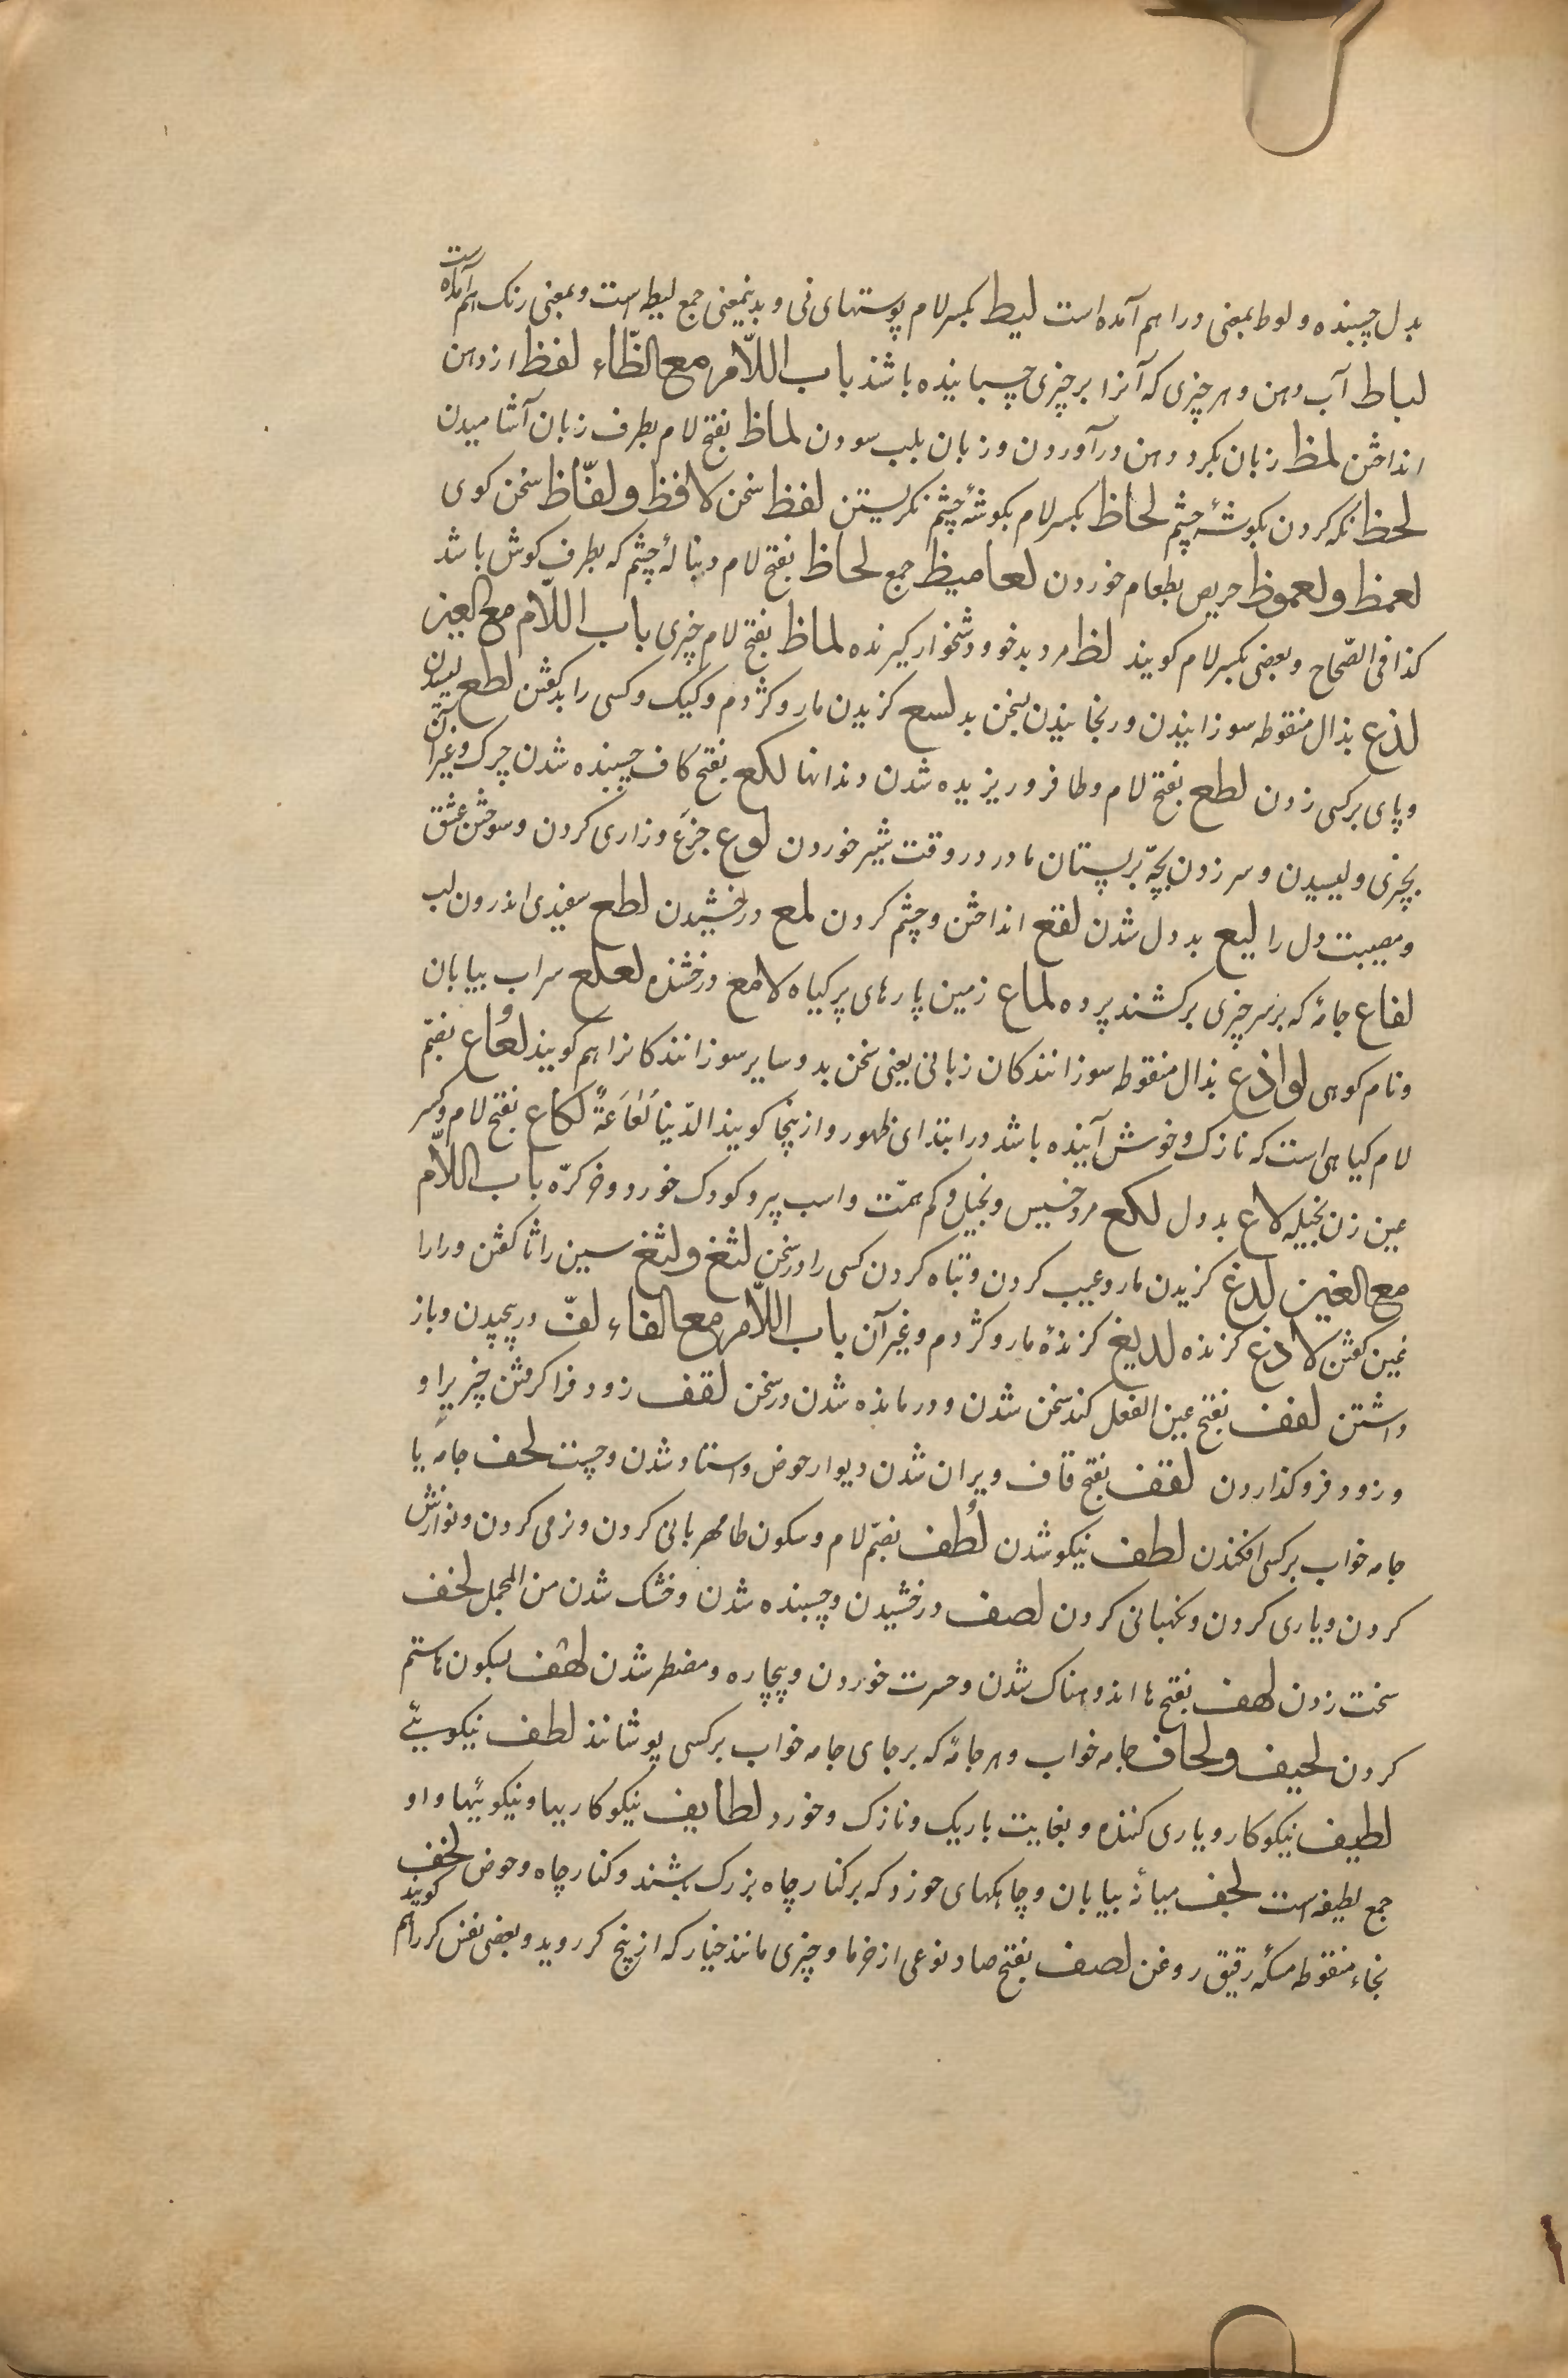 بدل چسبنده و لوط بمعنی ورا هم آمده است لیط بکسر لام پوستهای نی و بدینمعنی جمع لیطه است و بمعنی رنک هم آمده است
لباط آب دهن و هر چیزی که آنرا بر چیزی چسبانیده باشند باب اللّام مع الظّاء لفظ از دهن
انداختن لمظ زبان بکرد دهن درآوردن و زبان بلب سودن لماظ بفتح لام بطرف زبان آشامیدن
لحظ نکه کردن بکوشهٔ چشم لحاظ بکسر لام بکوشهٔ چشم نکریستن لفظ سخن لافظ و لفّاظ سخن کوی
لعمظ و لعموظ حریص بطعام خوردن لعامیظ جمع لحاظ بفتح لام دنبالهٔ چشم که بطرف کوش باشد
کذا فی الصّحاح و بعضی بکسر لام کویند لظ مرد بدخو و دشخوار کیرنده لماظ بفتح لام چیزی باب اللّام مع العین
لذع بذال منقوطه سوزانیدن و رنجانیدن بسخن بد لسع کزیدن مار و کژدم و کیک و کسی را بد کفتن لطع لیسیدن
و پای بر کسی زدن لطع بفتح لام و طا فرو ریزیده شدن دندانها لکع بفتح کاف چسبنده شدن چرک و غیر آن
بچیزی و لیسیدن و سر زدن بچّه بر پستان مادر در وقت شیر خوردن لوع جزع و زاری کردن و سوختن عشق
و مصیبت دل را لیع بد دل شدن لقع انداختن و چشم کردن لمع درخشیدن لطع سفیدی اندرون لب
لفاع جامهٔ که بر سر چیزی برکشند پرده لماع زمین پارهای پر کیاه لامع درخشنده لعلع سراب بیابان
و نام کوهی لواذع بذال منقوطه سوزانندکان زبانی یعنی سخن بد و سایر سوزانندکانرا هم کویند لُعاع بضمّ
لام کیاهی است که نازک و خوش آینده باشد در ابتدای ظهور و از ینجا کویند الدّنیا لُعَاعَةٌ لکاع بفتح لام و کسر
عین زن بخیله لاع بد دل لکع مرد خسیس و بخیل و کم همّت و اسب پیر و کودک خورد و خر کرّه باب اللّام
مع الغین لدغ کزیدن مار و عیب کردن و تباه کردن کسی را در سخن لثغ و لثغ سین را ثا کفتن و را را
غین کفتن لادغ کزنده لدیغ کزندهٔ مار و کژدم و غیر آن باب اللّام مع الفاء لفّ در پیچیدن و باز
داشتن لفف بفتح عین الفعل کند سخن شدن و درمانده شدن در سخن لقف زود فرا کرفتن چیزیرا و
و زود فرو کذاردن لقف بفتح قاف ویران شدن دیوار حوض و استاد شدن و چست لحف جامه یا
جامه خواب بر کسی افکندن لطف نیکو شدن لُطف بضمّ لام و سکون طا مهربانی کردن و نرمی کردن و نوازش
کردن و یاری کردن و نکهبانی کردن لصف درخشیدن و چسبنده شدن و خشک شدن من المجمل لخف
سخت زدن لهف بفتح ها اندوهناک شدن و حسرت خوردن و بیچاره و مضطر شدن لهف بسکون ها ستم
کردن لحیف و لحاف جامه خواب و هر جامهٔ که بر جای جامه خواب بر کسی پوشانند لطف نیکویئے
لطیف نیکوکار و یاری کننده و بغایت باریک و نازک و خورد لطایف نیکوکاریها و نیکوئیها و او
جمع لطیفه است لجف میانهٔ بیابان و چاهکهای خورد که بر کنار چاه بزرک باشند و کنار چاه و حوض لخف
بخاء منقوطه مسکهٔ رقیق روغن لصف بفتح صاد نوعی از خرما و چیزی مانند خیار که از بیخ کبر روید و بعضی نفس کبر را هم کویند